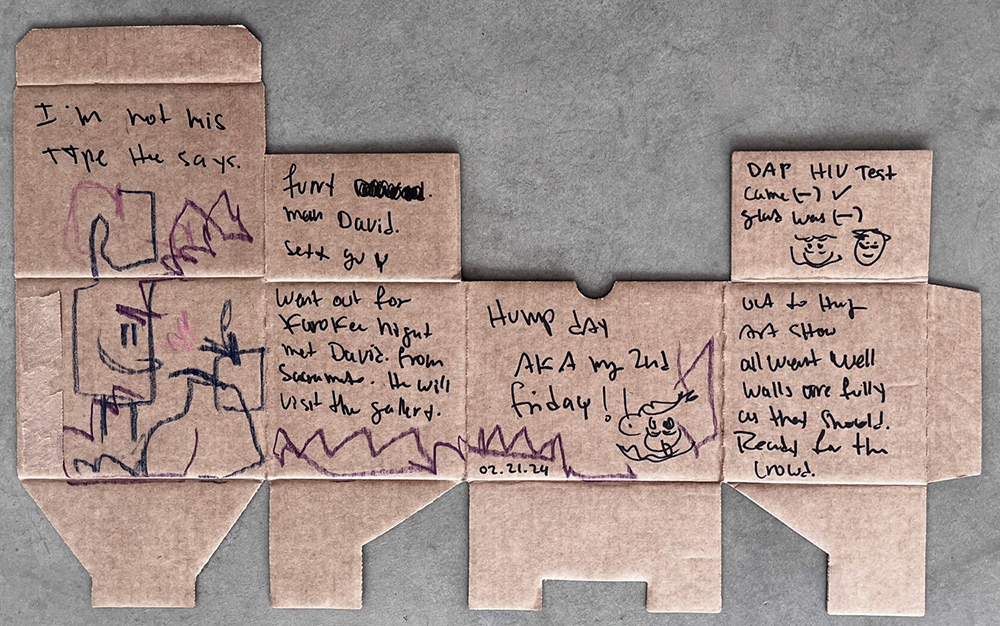 I'm not his
type He says.
funny
man David.
Went out for
Karokee night
met David. from
Sacramento. He will
visit the gallery.
Hump dAy
AKA my 2nd
friday!
02.21.24
DAP HIV Test
came (-) ✓
glas was (-)
out to Hung
Art Show
all went well
walls are fully
as they should.
Ready for the
Crowd.